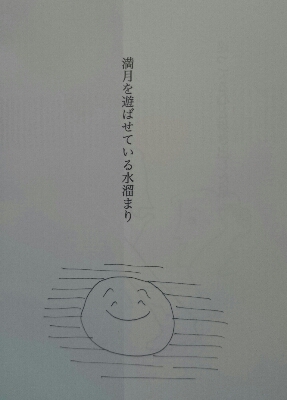 満月を遊ばせている水溜まり